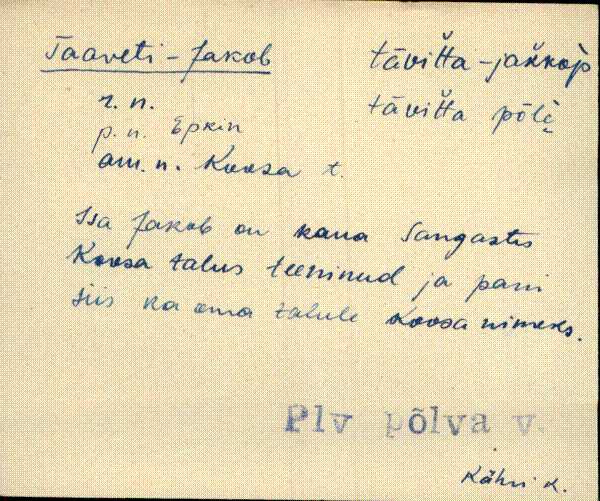 Taaveti-Jakob
tàvi̮t̆t̆a-jak̆k̆òp
r. n.
tàvi̮t̆t̆a põlè̬
p. n. Epkin
am. n. Koosa t.
Isa Jakob on kaua Sangastes
Koosa talus teeninud ja pani
siis ka oma talule Koosa nimeks.
Plv põlva v.
Kähri K.